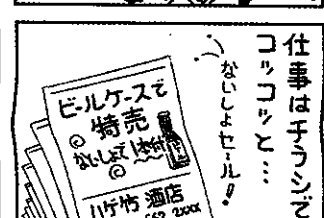 仕事はチラシで
コツコツと…
ないしょセール!
ビールケースで
特売
ないしょで1本付
ハゲ竹 酒店